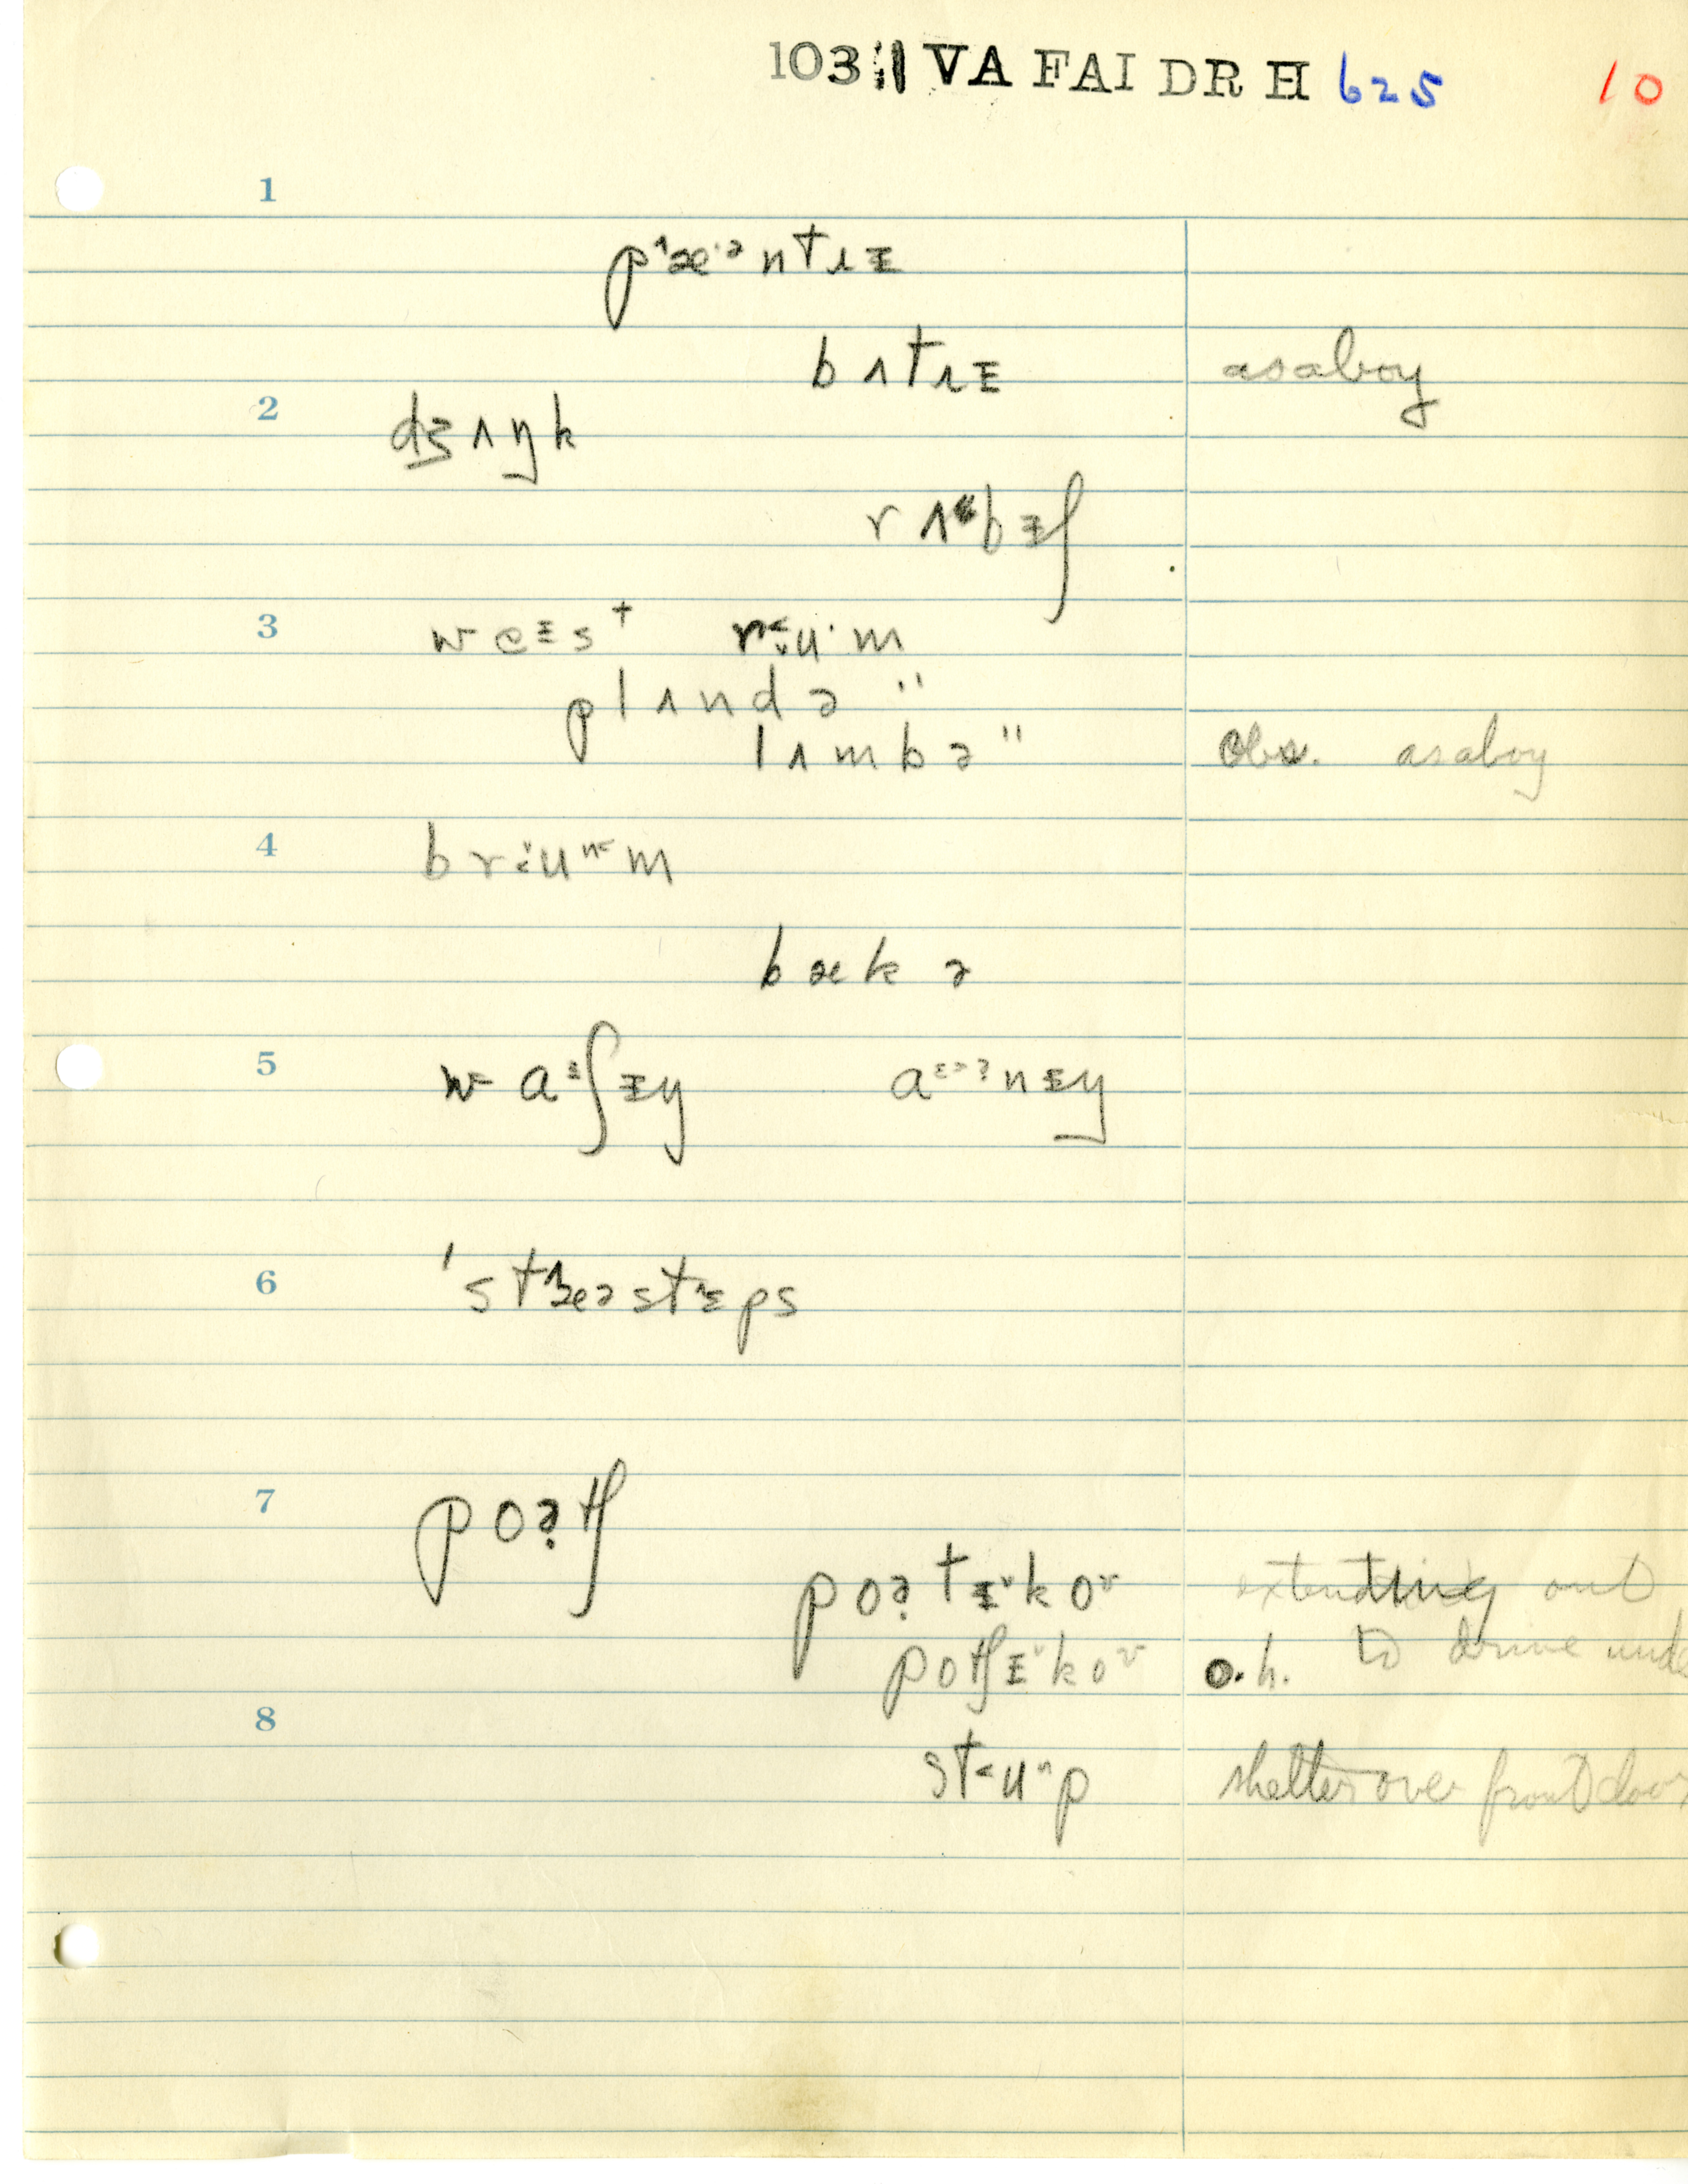 103.1 VA FAI DR H 625 10
1
pᶺæ·ᵊntɹɪ
bʌtɹɪ asaboy
2
dʒʌŋk
rʌbɪʃ
3 weɪst ru·m
plʌndə "
lʌmbə " Obs. asaboy
4
brum
bækə
5
waʃɪy anɪy
6
'stæəstɛps
7
poə̣tʃ
poə̣tɪˇkoᵛ extending out
potʃɪˇkoᵛ o.h. to drive unde
8
stup shelter over front door